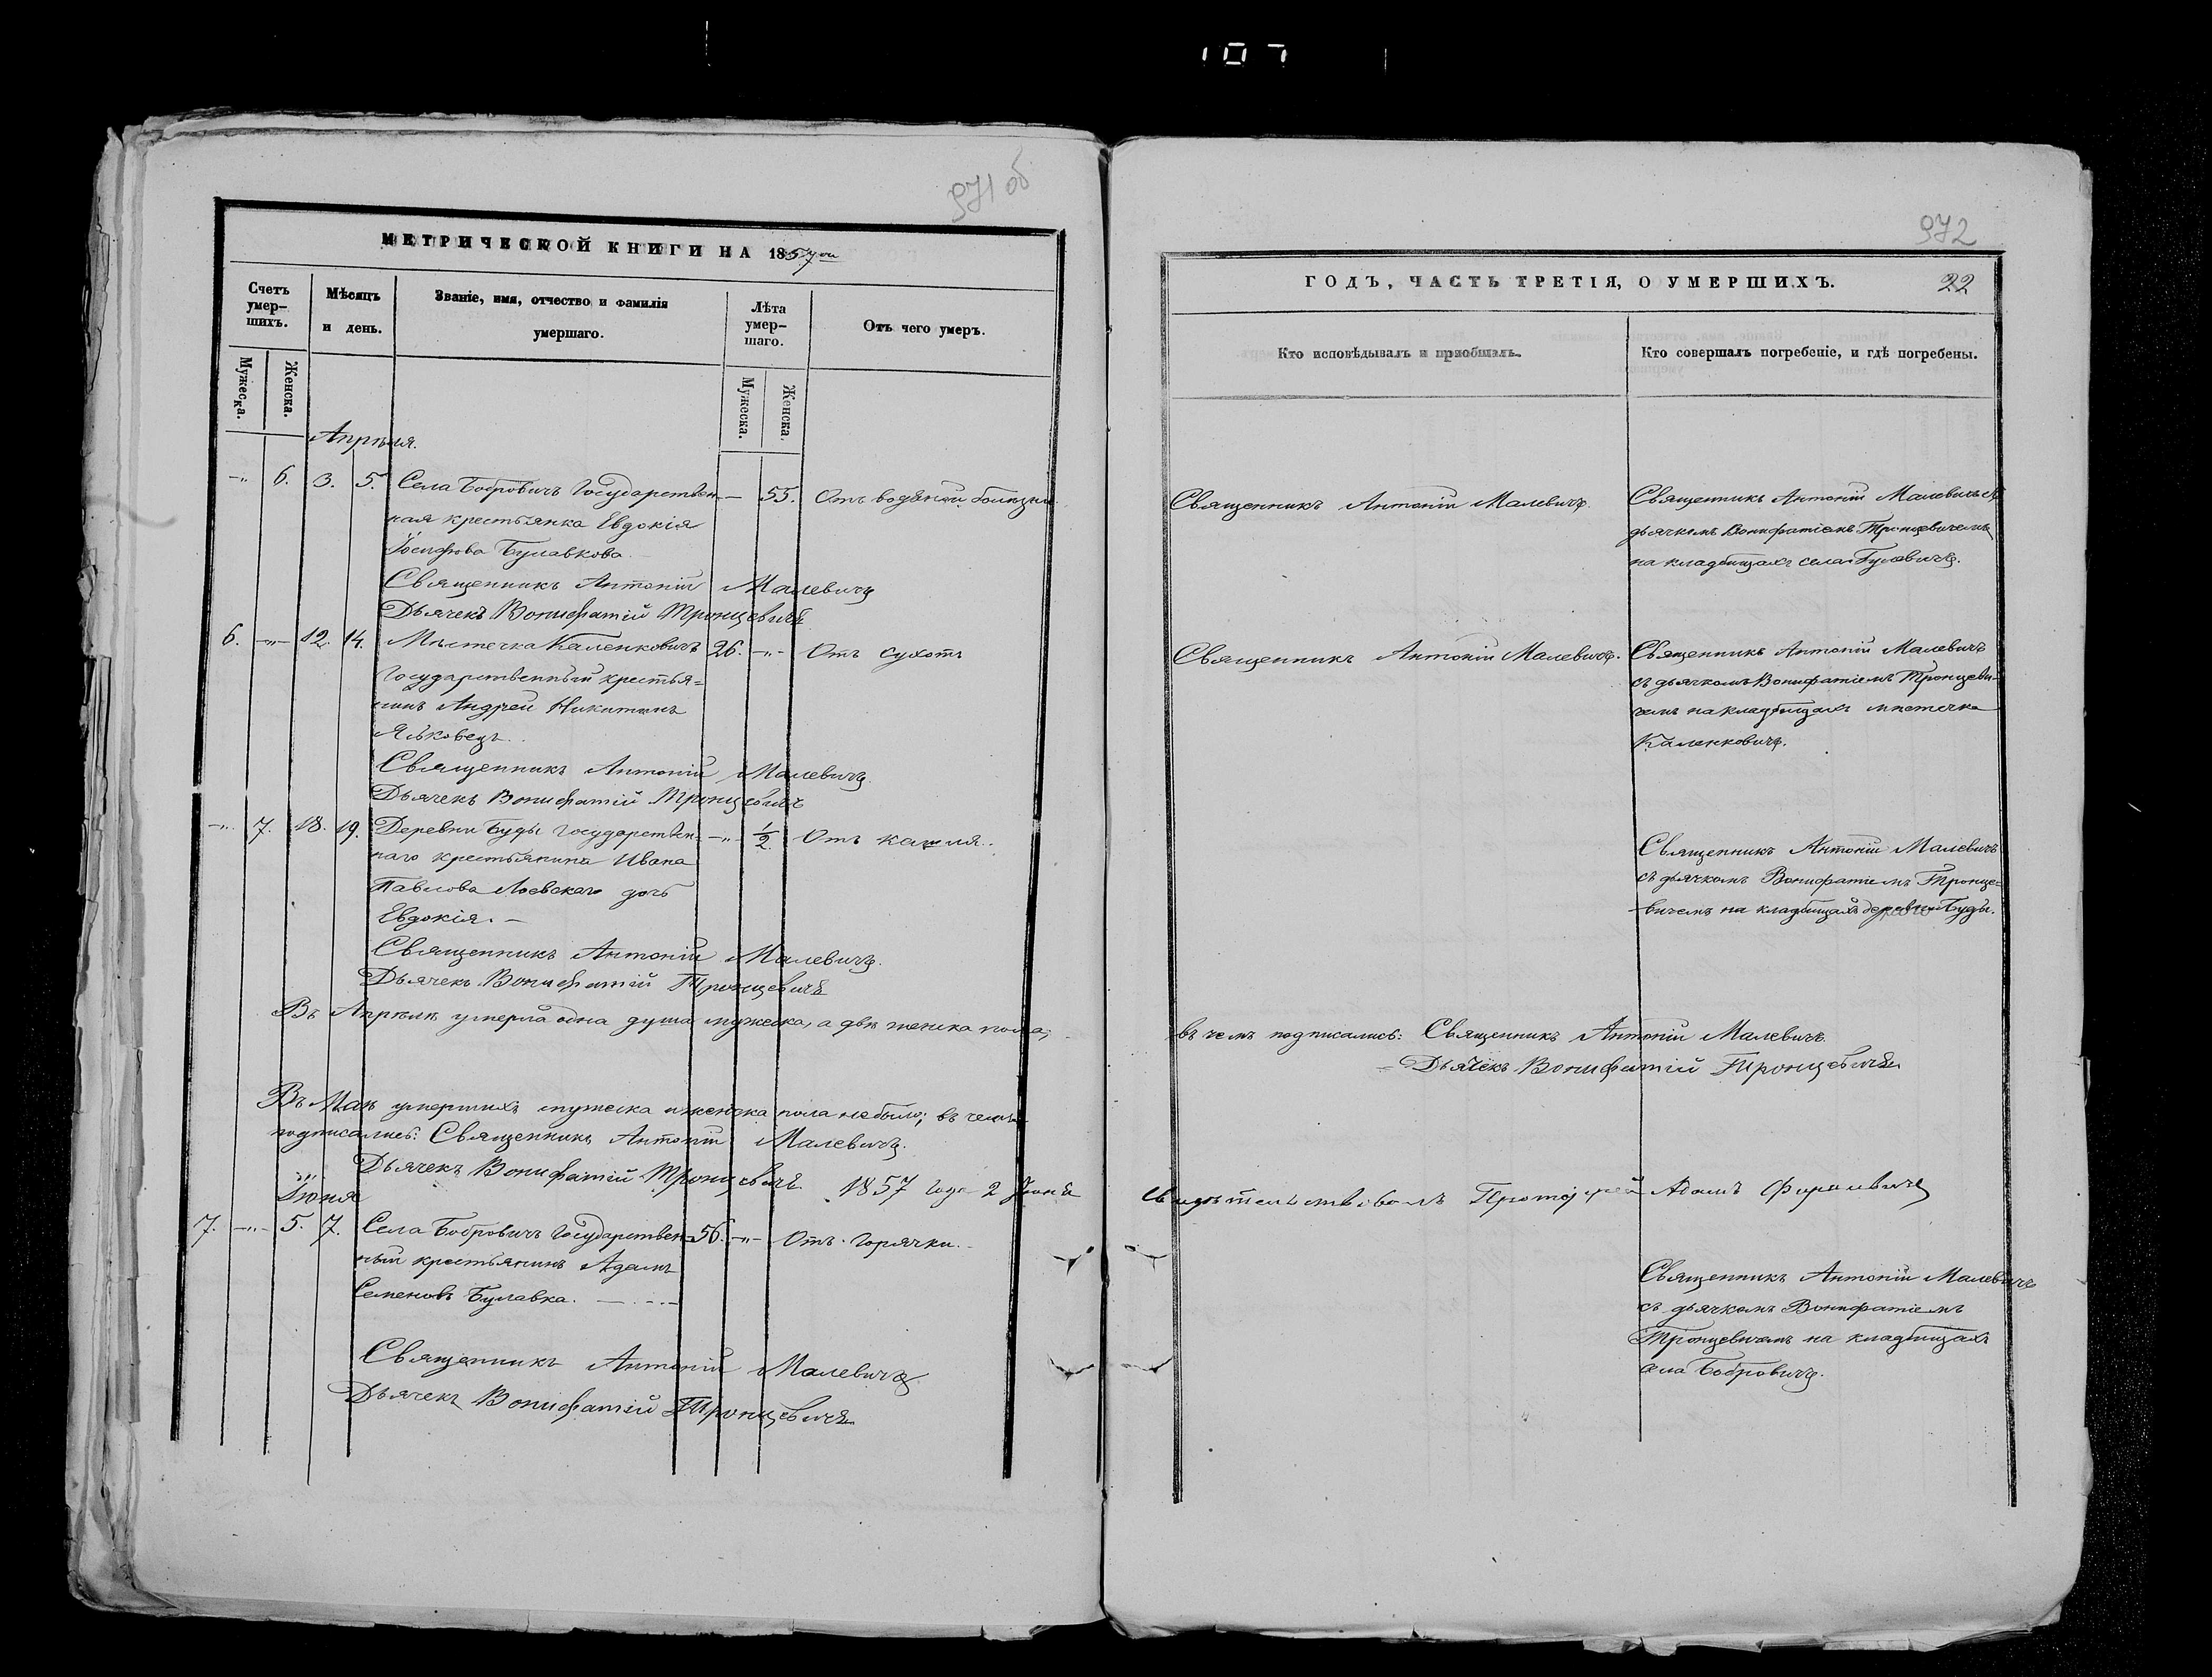 107
971 об
МЕТРИЧЕСКОЙ КНИГИ НА 1857ой
Счетъ умер-
шихъ.
Мужеска.
Женска.
Мѣсяцъ
и день.
Званіе, имя, отчество и фамилія
умершаго.
Лѣта
умер-
шаго.
Мужеска.
Женска.
Отъ чего умеръ.
Апрѣля.
-"- 6. 3. 5. Села Бобровичъ Государствен- — 55. Отъ водяной болезни
ная крестьянка Евдокія
Іосифова Булавкова.
Священникъ Антоній Малевичъ
Дьячекъ Вонифатій Тронцевичъ
6. -"- 12. 14. Мѣстечка Каленковичъ 26. -"- Отъ сухотъ
Государственный крестья=
нинъ Андрей Никитинъ
Яськовецъ.
Священникъ Антоній Малевичъ.
Дьячекъ Вонифатій Тронцевичъ
-"- 7. 18. 19. Деревни Буды Государствен- -"- 1/2. Отъ кашля.
наго крестьянина Ивана
Павлова Лоевскаго дочь
Евдокія. —
Священникъ Антоній Малевичъ.
Дьячекъ Вонифатій Тронцевичъ
Въ Апрѣлѣ умерла одна душа мужеска, а двѣ женска пола;
Въ Маѣ умершихъ мужеска и женска пола небыло; въ чемъ
подписались: Священникъ Антоній Малевичъ.
Дьячекъ Вонифатій Тронцевичъ. 1857 года 2 Іюня
Іюня
7. -"- 5. 7. Села Бобровичъ Государствен- 56. -"- Отъ горячки.
ный крестьянинъ Адамъ
Семеновъ Булавка.
Священникъ Антоній Малевичъ.
Дьячекъ Вонифатій Тронцевичъ
972
ГОДЪ, ЧАСТЬ ТРЕТІЯ, О УМЕРШИХЪ. 22
Кто исповѣдывалъ и пріобщалъ.
Кто совершалъ погребеніе, и гдѣ погребены.
Священникъ Антоній Малевичъ.
Священникъ Антоній Малевичъ съ
дьячкомъ Вонифатіемъ Тронцевичемъ
на кладбищахъ села
Священникъ Антоній Малевичъ.
Священникъ Антоній Малевичъ
съ дьячкомъ Вонифатіемъ Тронцеви-
чемъ на кладбищахъ мѣстечка
Каленковичъ.
Священникъ Антоній Малевичъ
съ дьячкомъ Вонифатіемъ Тронце-
вичемъ на кладбищахъ деревни Буды.
въ чемъ подписались: Священникъ Антоній Малевичъ.
Дьячекъ Вонифатій Тронцевичъ
Свидѣтельствовалъ Протоіерей Адамъ
Священникъ Антоній Малевичъ
съ дьячкомъ Вонифатіемъ
Тронцевичемъ на кладбищахъ
села Бобровичъ.